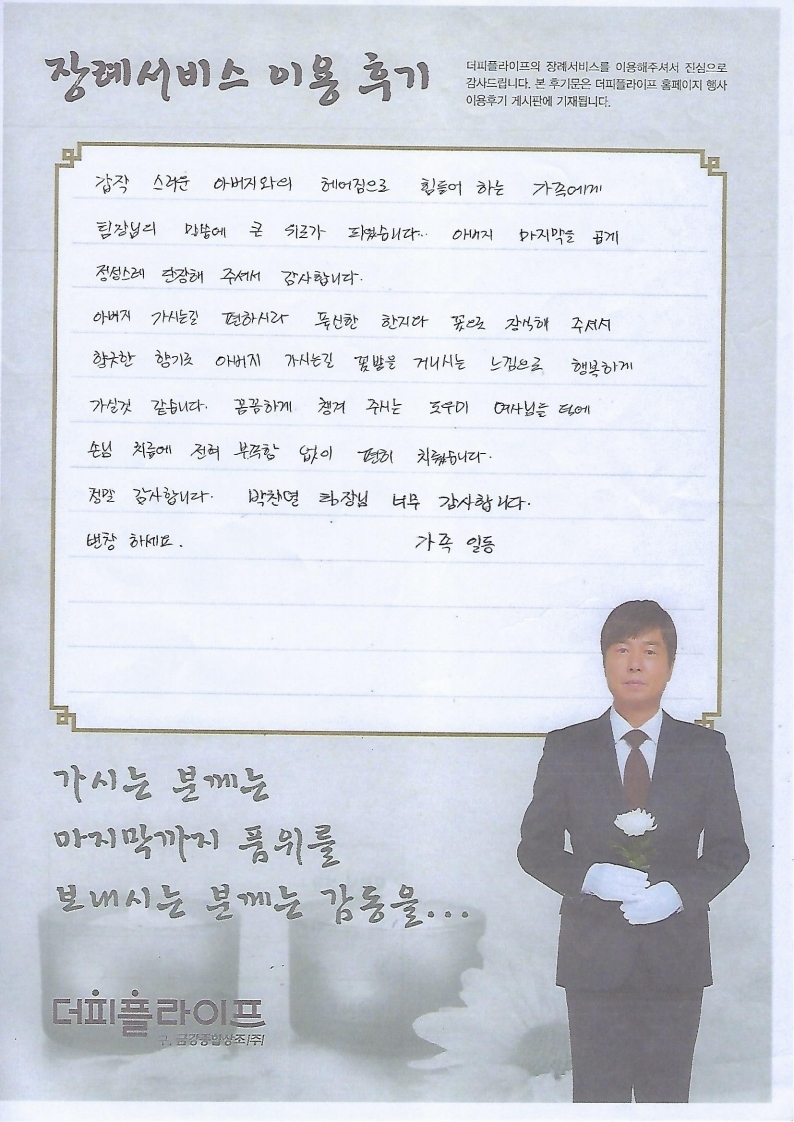 장례서비스 이용 후기
더피플라이프의 장례서비스를 이용해주셔서 진심으로
감사드립니다. 본 후기문은 더피플라이프 홈페이지 행사
이용후기 게시판에 기재됩니다.
갑작 스러운 아버지와의 헤어짐으로 힘들어 하는 가족에게
팀장님의 말씀에 큰 위로가 되었습니다... 아버지 마지막을 곱게
정성스레 단장해 주셔서 감사합니다.
아버지 가시는길 편하시라 푹신한 한지와 꽃으로 장식해 주셔서
향긋한 향기로 아버지 가시는길 꽃밭을 거니시는 느낌으로 행복하게
가실것 같습니다. 꼼꼼하게 챙겨 주시는 도우미 여사님들 덕에
손님 치름에 전혀 부족함 없이 편히 치뤘습니다.
정말 감사합니다. 박찬열 팀장님 너무 감사합니다.
번창 하세요. 가족 일동
가시는 분께는
마지막까지 품위를
보내시는 분께는 감동을...
더피플라이프
구. 금강종합상조(주)